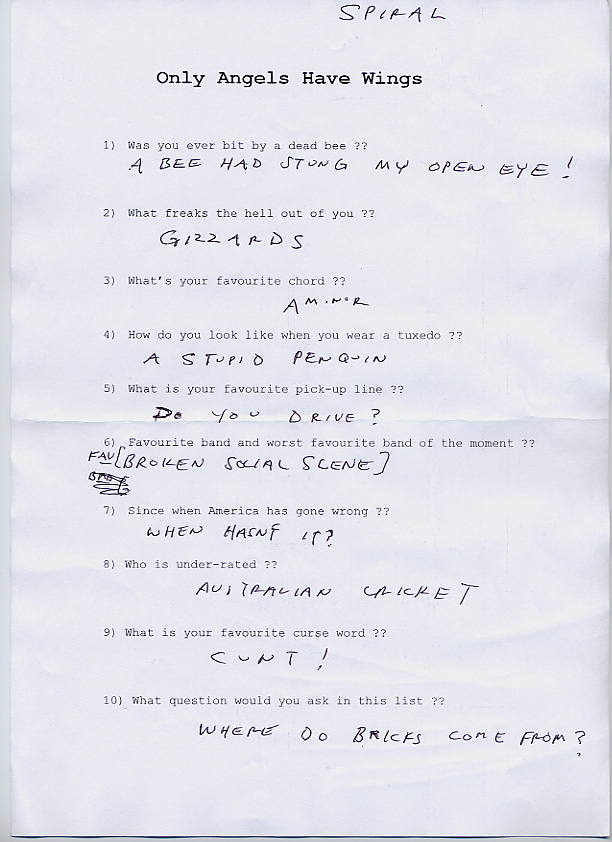 SPIRAL
Only Angels Have Wings
1) Was you ever bit by a dead bee ??
A BEE HAD STUNG MY OPEN EYE!
2) What freaks the hell out of you ??
GIZZARDS
3) What's your favourite chord ??
A MINOR
4) How do you look like when you wear a tuxedo ??
A STUPID PENQUIN
5) What is your favourite pick-up line ??
DO YOU DRIVE?
6) Favourite band and worst favourite band of the moment ??
FAV [BROKEN SOCIAL SCENE]
7) Since when America has gone wrong ??
WHEN HASNT IT?
8) Who is under-rated ??
AUSTRALIAN CRICKET
9) What is your favourite curse word ??
CUNT!
10) What question would you ask in this list ??
WHERE DO BRICKS COME FROM?